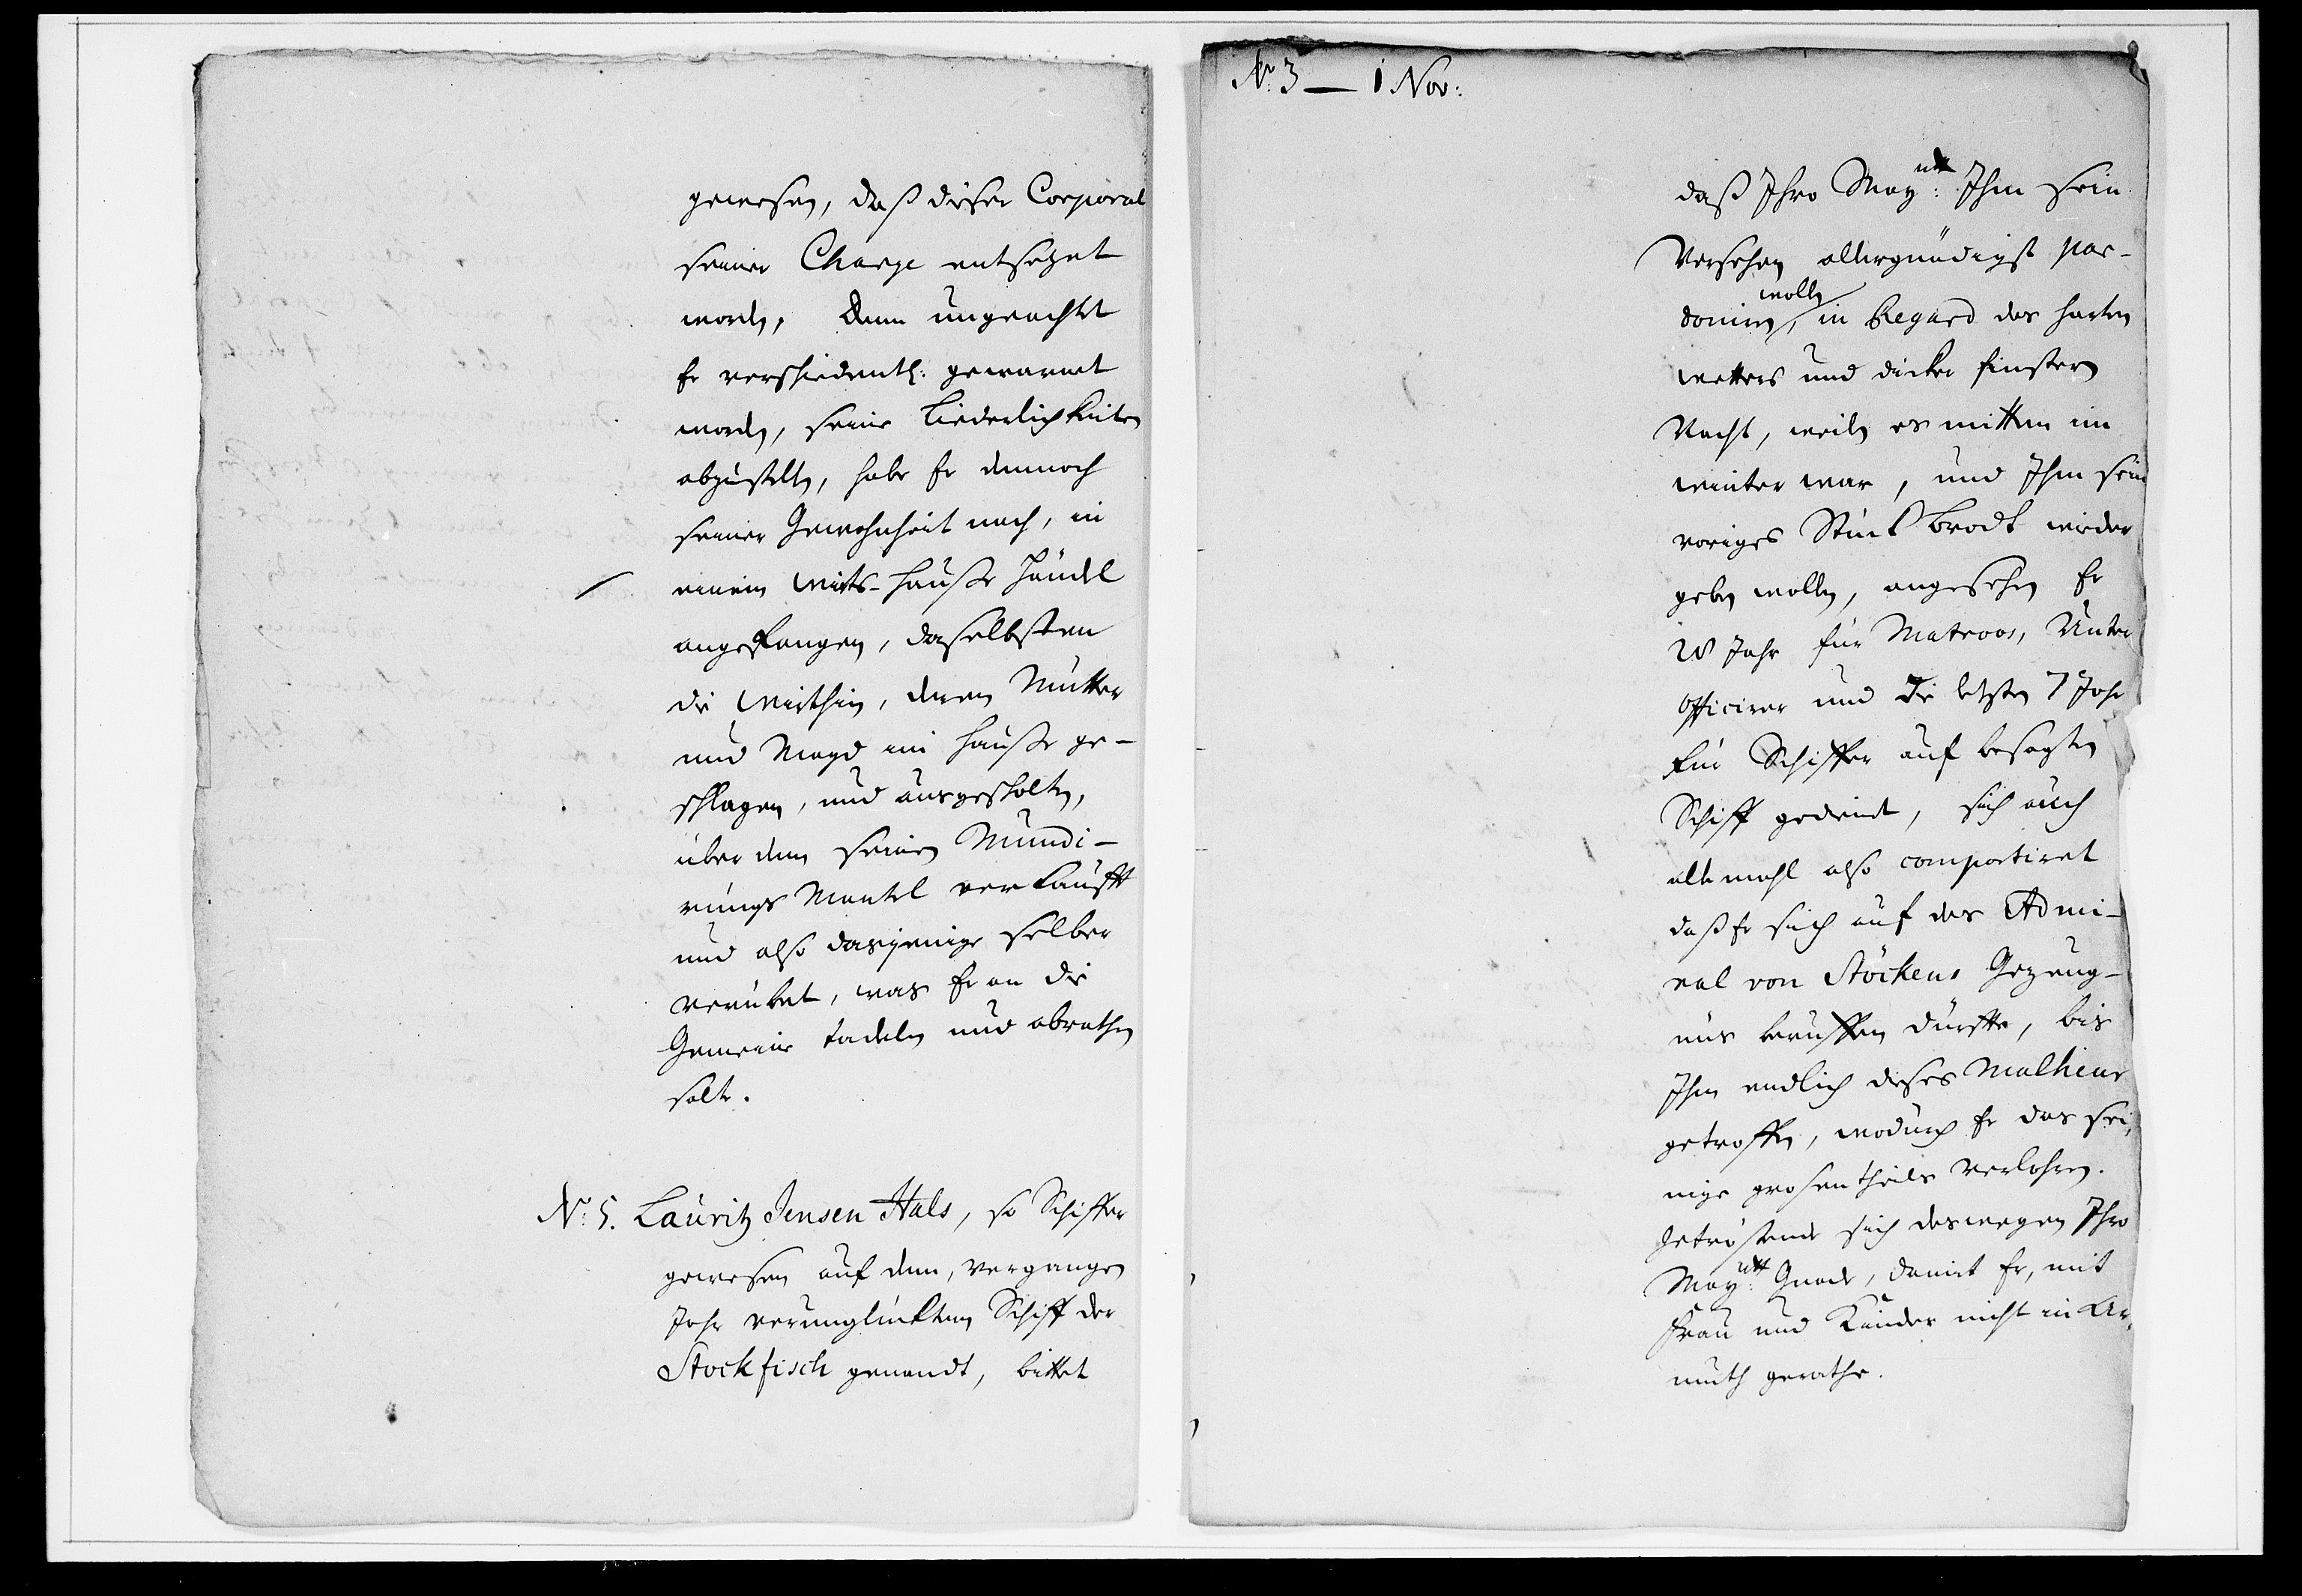 gewesen, daß dieser Corporal
seiner Charge entsetzet
worden, denn ungeachtet
Er verschiedentl: gewarnet
worden, seine Liederlichkeiten
abzustellen, habe Er dennoch
seiner Gewohnheit nach, in
einem Wirts-Hauße Händel
angefangen, daselbsten
die Wirthin, deren Mutter
und Magd im Hauße ge-
schlagen, und ausgescholten,
über dem seinen Mundi-
rungs Mantel verkaufft
und also dasjenige selber
verübet, was Er an die
Gemeine tadeln und abrathen
solte.
No: 5. Lauritz Jensen Hals, so Schiffer
gewesen auf dem, vergangen
Jahr verunglückten Schiff der
Stockfisch genandt, bittet
No: 3 — 1 Nov:
daß Ihro May:tt Ihm sein
Versehen allergnädigst par-
doniren wollen, in Regard des harten
Wetters und dicker finstern
Nacht, weilen es mitten im
Winter war, und Ihm sein
voriges Stück Brodt wieder
geben wollen, angesehen Er
28 Jahr für Matroos, Unter
Officirer und die letzten 7 Jahr
für Schiffer auf besagten
Schiff gedient, sich auch
allemahl also comportiret
daß Er sich auf des Admi-
ral von Stöckens Gezeug-
nüs beruffen dürffte, bis
Ihm endlich dieses Malheur
getroffen, wodurch Er das sei-
nige grosentheils verlohren.
Getröstende sich deswegen Ihro
May:tt Gnade, damit Er, mit
Frau und Kinder nicht in Ar-
muth gerathe.